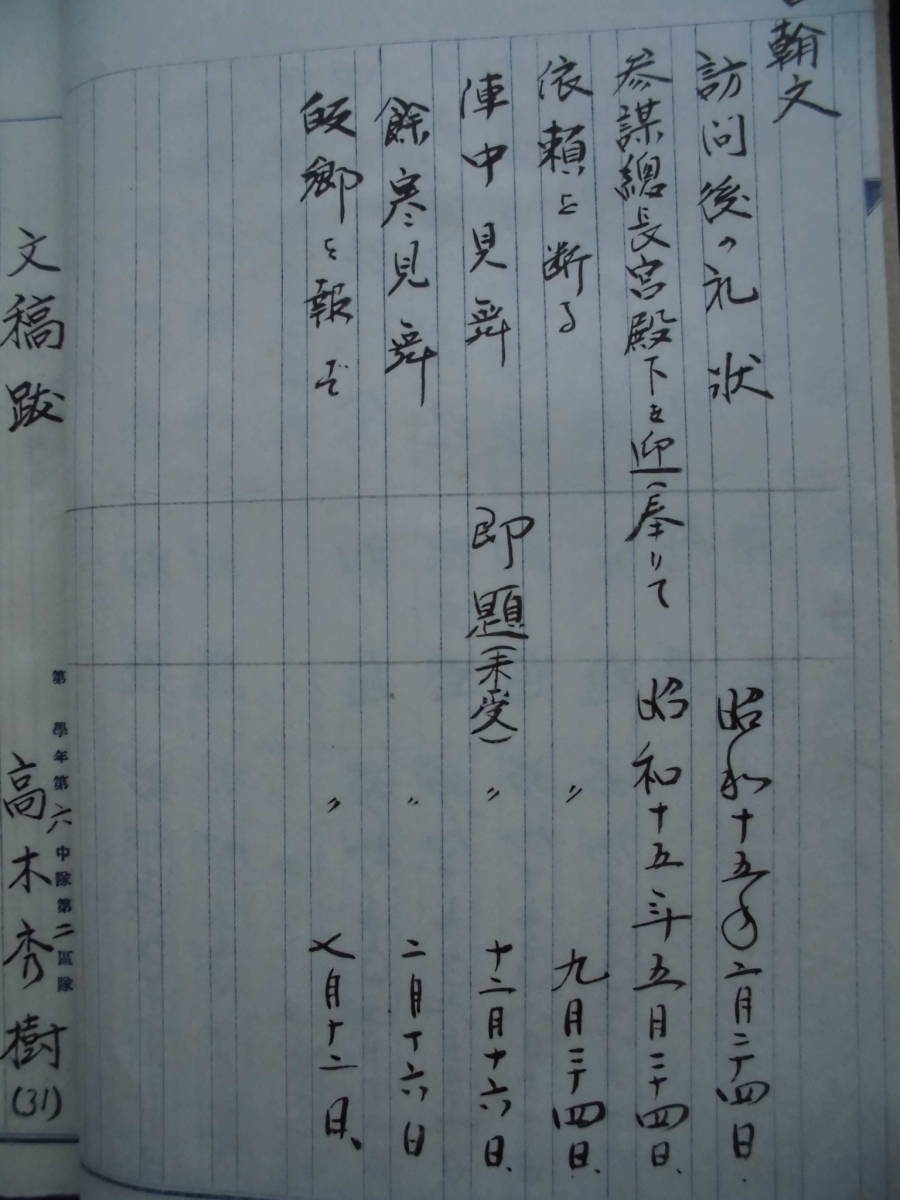 翰文
訪問後の礼状 昭和十五年二月二十四日
参謀總長宮殿下を迎へ奉りて 昭和十五年五月二十四日
依頼を断る 〃 九月二十四日
陣中見舞 即題(未受) 〃 十二月十六日
餘寒見舞 〃 二月十六日
皈郷を報ず 〃 七月十二日
第 學年第六中隊第二區隊
文稿跋 高木秀樹(31)